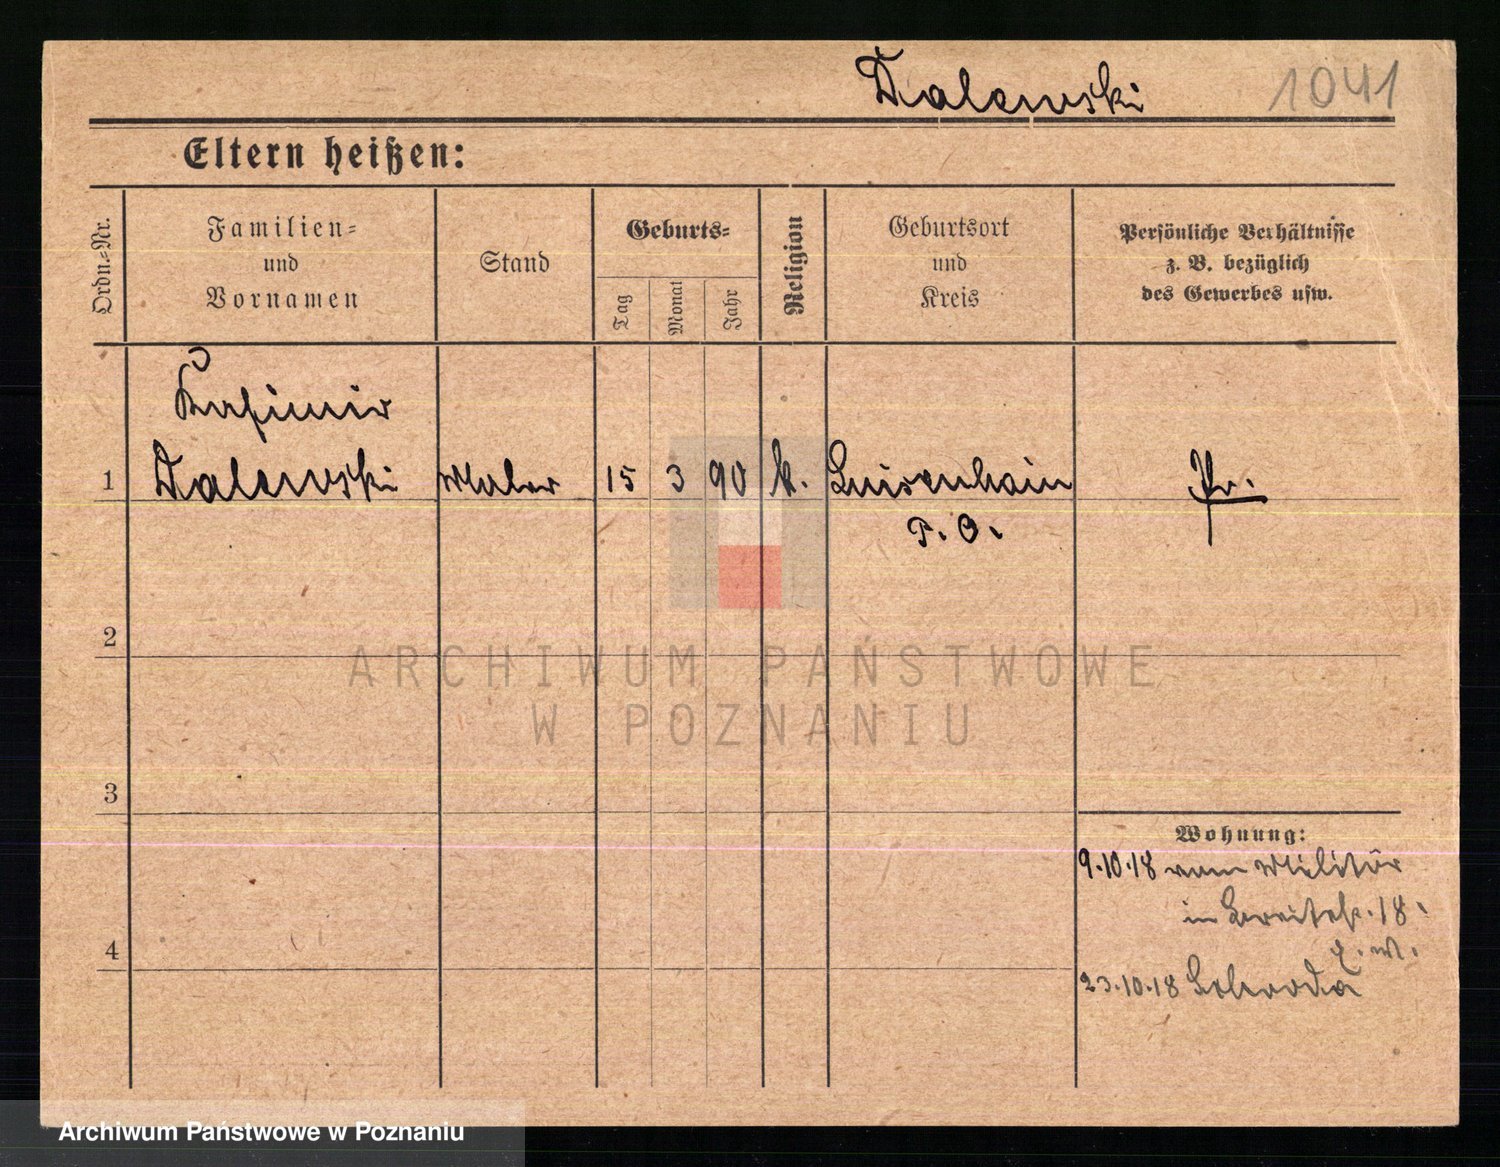 Dalewski 1041
Eltern heißen:
Ordn.-Nr.
Familien-
und
Vornamen
Stand
Geburts-
Tag
Monat
Jahr
Religion
Geburtsort
und
Kreis
Persönliche Verhältnisse
z. B. bezüglich
des Gewerbes usw.
Kasimir
1 Dalewski Maler 15 3 90 k. Luisenhain Pr.
P. O.
2
ARCHIWUM PAŃSTWOWE
W POZNANIU
3
Wohnung:
9.10.18 vom Militär
in Breitestr. 18.
4
23.10.18 Schroda
Archiwum Państwowe w Poznaniu